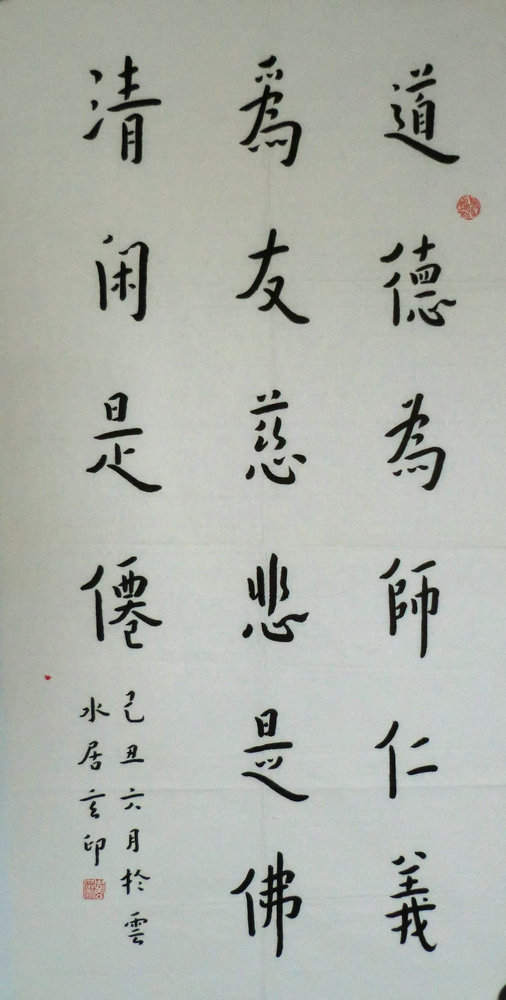 道德為師仁義
爲友慈悲是佛
清閑是僊
己丑六月於雲
水居玄印